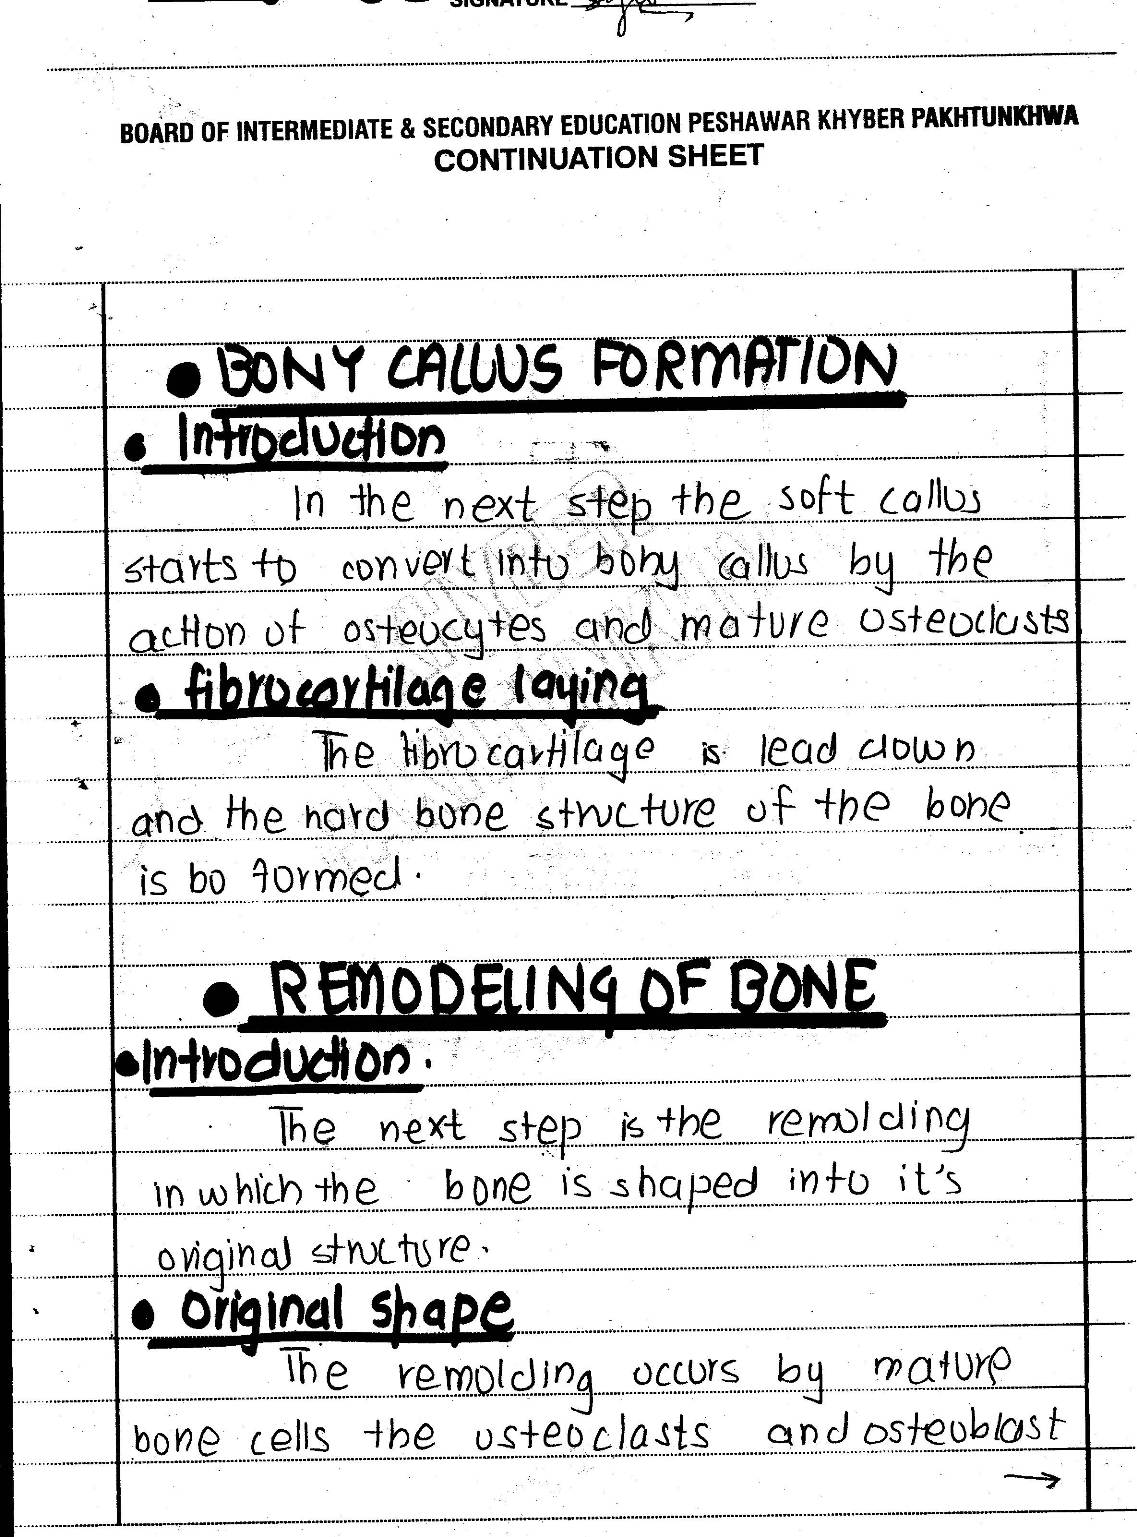 SIGNATURE
BOARD OF INTERMEDIATE & SECONDARY EDUCATION PESHAWAR KHYBER PAKHTUNKHWA
CONTINUATION SHEET
• BONY CALLUS FORMATION
• Introduction
In the next step the soft callus
starts to convert into bony callus by the
action of osteocytes and mature osteoclasts
• fibrocartilage laying
The fibrocartilage is lead down
and the hard bone structure of the bone
is bo formed.
• REMODELING OF BONE
• Introduction.
The next step is the remolding
in which the bone is shaped into it's
original structure.
• Original shape
The remolding occurs by mature
bone cells the osteoclasts and osteoblast
→